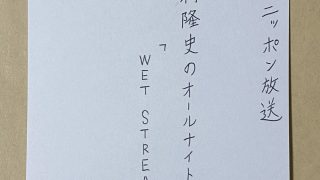 ニッポン放送
隆史のオールナイト
「WET STREA